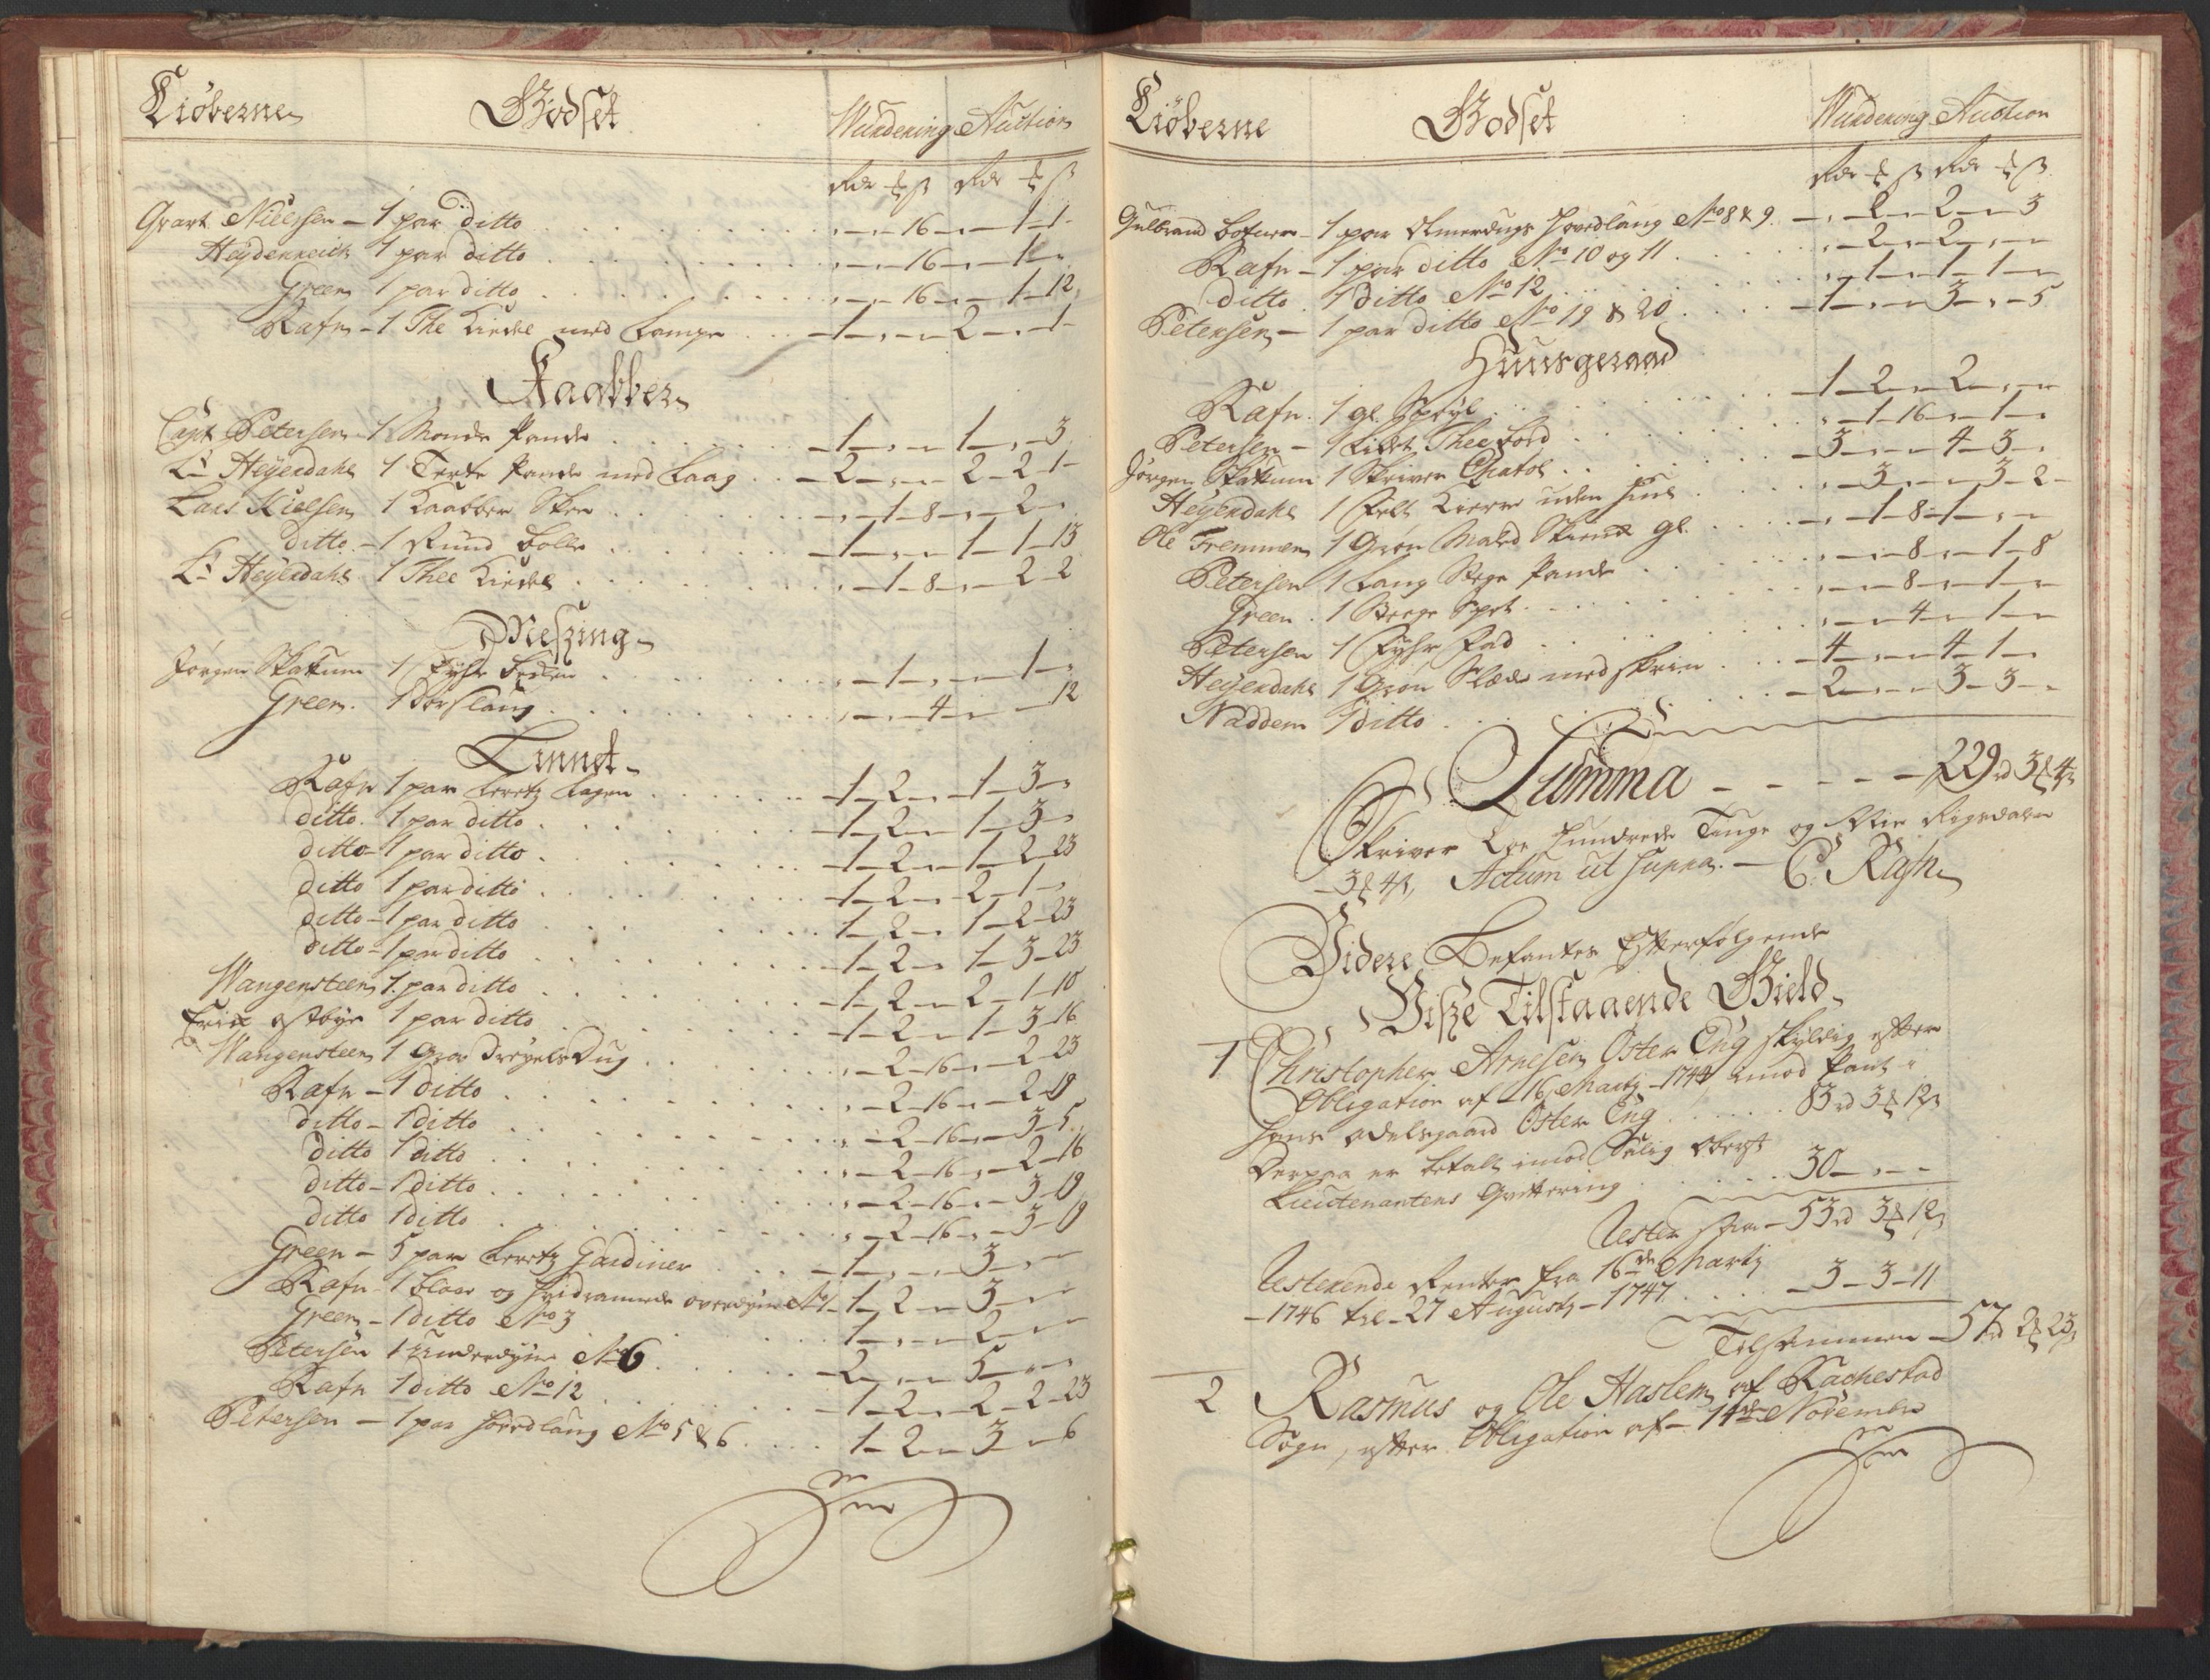 Kiöberne Godset Wurdering Auction
Rdr ß Rdr ß
Gvart Nielsen - 1 par ditto - - 16 - - 1 - 1 -
Heydenreich 1 par ditto - - 16 - - 1 -
Green 1 par ditto - - 16 - - 1 - 12
Rafn - 1 The Kiedel med Lampe - 1 - - - 2 - - 1 -
Kaabber
Capt Petersen - 1 Monde Pande - 1 - - - 1 - - 3
Lt Heyerdahl 1 Terte Pande med Laag - 2 - - - 2 - 2 - 1 -
Lars Nielsen 1 Kaabber Skee - - 1 - 8 - - 2 -
ditto - 1 Rund bolle - 1 - - - 1 - 1 - 13
Lt Heyerdahl 1 Thee Kiedel - 1 - 8 - - 2 - 2
Messing
Jörgen Skakum 1 Fyhr beken - 1 - - - 1 -
Green 1 Dörslaug - - 4 - - 12
Linnet
Rafn 1 par Lerretz Lagen - 1 - 2 - - 1 - 3 -
ditto 1 par ditto - 1 - 2 - - 1 - 3 -
ditto - 1 par ditto - 1 - 2 - - 1 - 2 - 23
ditto 1 par ditto - 1 - 2 - - 2 - 1 -
ditto - 1 par ditto 1 - 2 - - 1 - 2 - 23
ditto - 1 par ditto - 1 - 2 - - 1 - 3 - 23
Wangensteen 1 par ditto - 1 - 2 - - 2 - 1 - 10
Erik Östbye 1 par ditto - 1 - 2 - - 1 - 3 - 16
Wangensteen 1 Grov Dreyels Dug - 2 - 16 - - 2 - 23
Rafn - 1 ditto - 2 - 16 - - 2 - 19
ditto - 1 ditto - 2 - 16 - - 3 - 5
ditto 1 ditto - 2 - 16 - - 2 - 16
ditto - 1 ditto - 2 - 16 - - 3 - 19
ditto 1 ditto - 2 - 16 - - 3 - 19
Green - 5 par Lerretz Gardiner - 1 - - - 3 - -
Rafn - 1 blaae og Hvidrannede overdyne No 1 - 1 - 2 - - 3 - -
Green - 1 ditto No 3 1 - - - 2 - -
Petersen 1 Underdyne No 6 - 2 - - - 5 - -
Rafn 1 ditto No 12 - 1 - 2 - - 2 - 2 - 23
Petersen - 1 par Hovedlaug No 5 & 6 1 - 2 - - 3 - - 6
Kiöberne Godset Wurdering Auction
Rdr ß Rdr ß
Gulbrand Botner - 1 par Olmerdugs Hovedlaug No 8 & 9 - 2 - - 2 - - 3
Rafn - 1 par ditto No 10 og 11 - 2 - - 2 - -
ditto 1 ditto No 12 - 1 - - 1 - 1 -
Petersen - 1 par ditto No 19 & 20 - 1 - - - 3 - - 5
Huusgeraad
Rafn 1 gl Speyl - 1 - 2 - - 2 - -
Petersen - 1 Lidet Thee Bord - 1 - 16 - - 1 -
Jörgen Skakum 1 Skriver Chatol - 3 - - - 4 - 3 -
Heyerdahl 1 Felt Kierre uden Hiul - 3 - - - 3 - 2 -
Ole Fremmen 1 Grön Maled Skienk gl - 1 - 8 - 1 - -
Petersen 1 Lang Stege Pande - - 8 - - 1 - 8
Green 1 Steege Spet - - 8 - - 1 -
Petersen 1 Fyhr Fad - - 4 - - 1 -
Heyerdahl 1 Grön Slæde med skrin - 4 - - - 4 - 1 -
Naddem 1 ditto - 2 - - - 3 - 3 -
Summa - - - - - 229 rd 3 4 ß
Skriver Toe Hundrede Tiuge og Nie Rigsdaler
- 3 4 ß, Actum ut Supra. - C. Rafn
Videre Befantes Efterfölgende
Visse Tilstaaende Gield
1 Christopher Arnesen Öster Eng skyldig efter
Obligation af - 16 Martj - 1744 imod Pant i
Hans Odelsgaard Öster Eng 83 rd 3 12 ß
Derpaa er betalt imod Salig Oberst
Lieutenantens Qvittering 30 - - -
Rester - 53 rd 3 12 ß
Resterende Renter fra 16de Martj
- 1746 til - 27 Augustj - 1747 - 3 - 3 - 11
Tilsammen - 57 rd 2 23 ß
2 Rasmus og Ole Haslem af Rachestad
Sogn, efter Obligation af - 14de Novembr